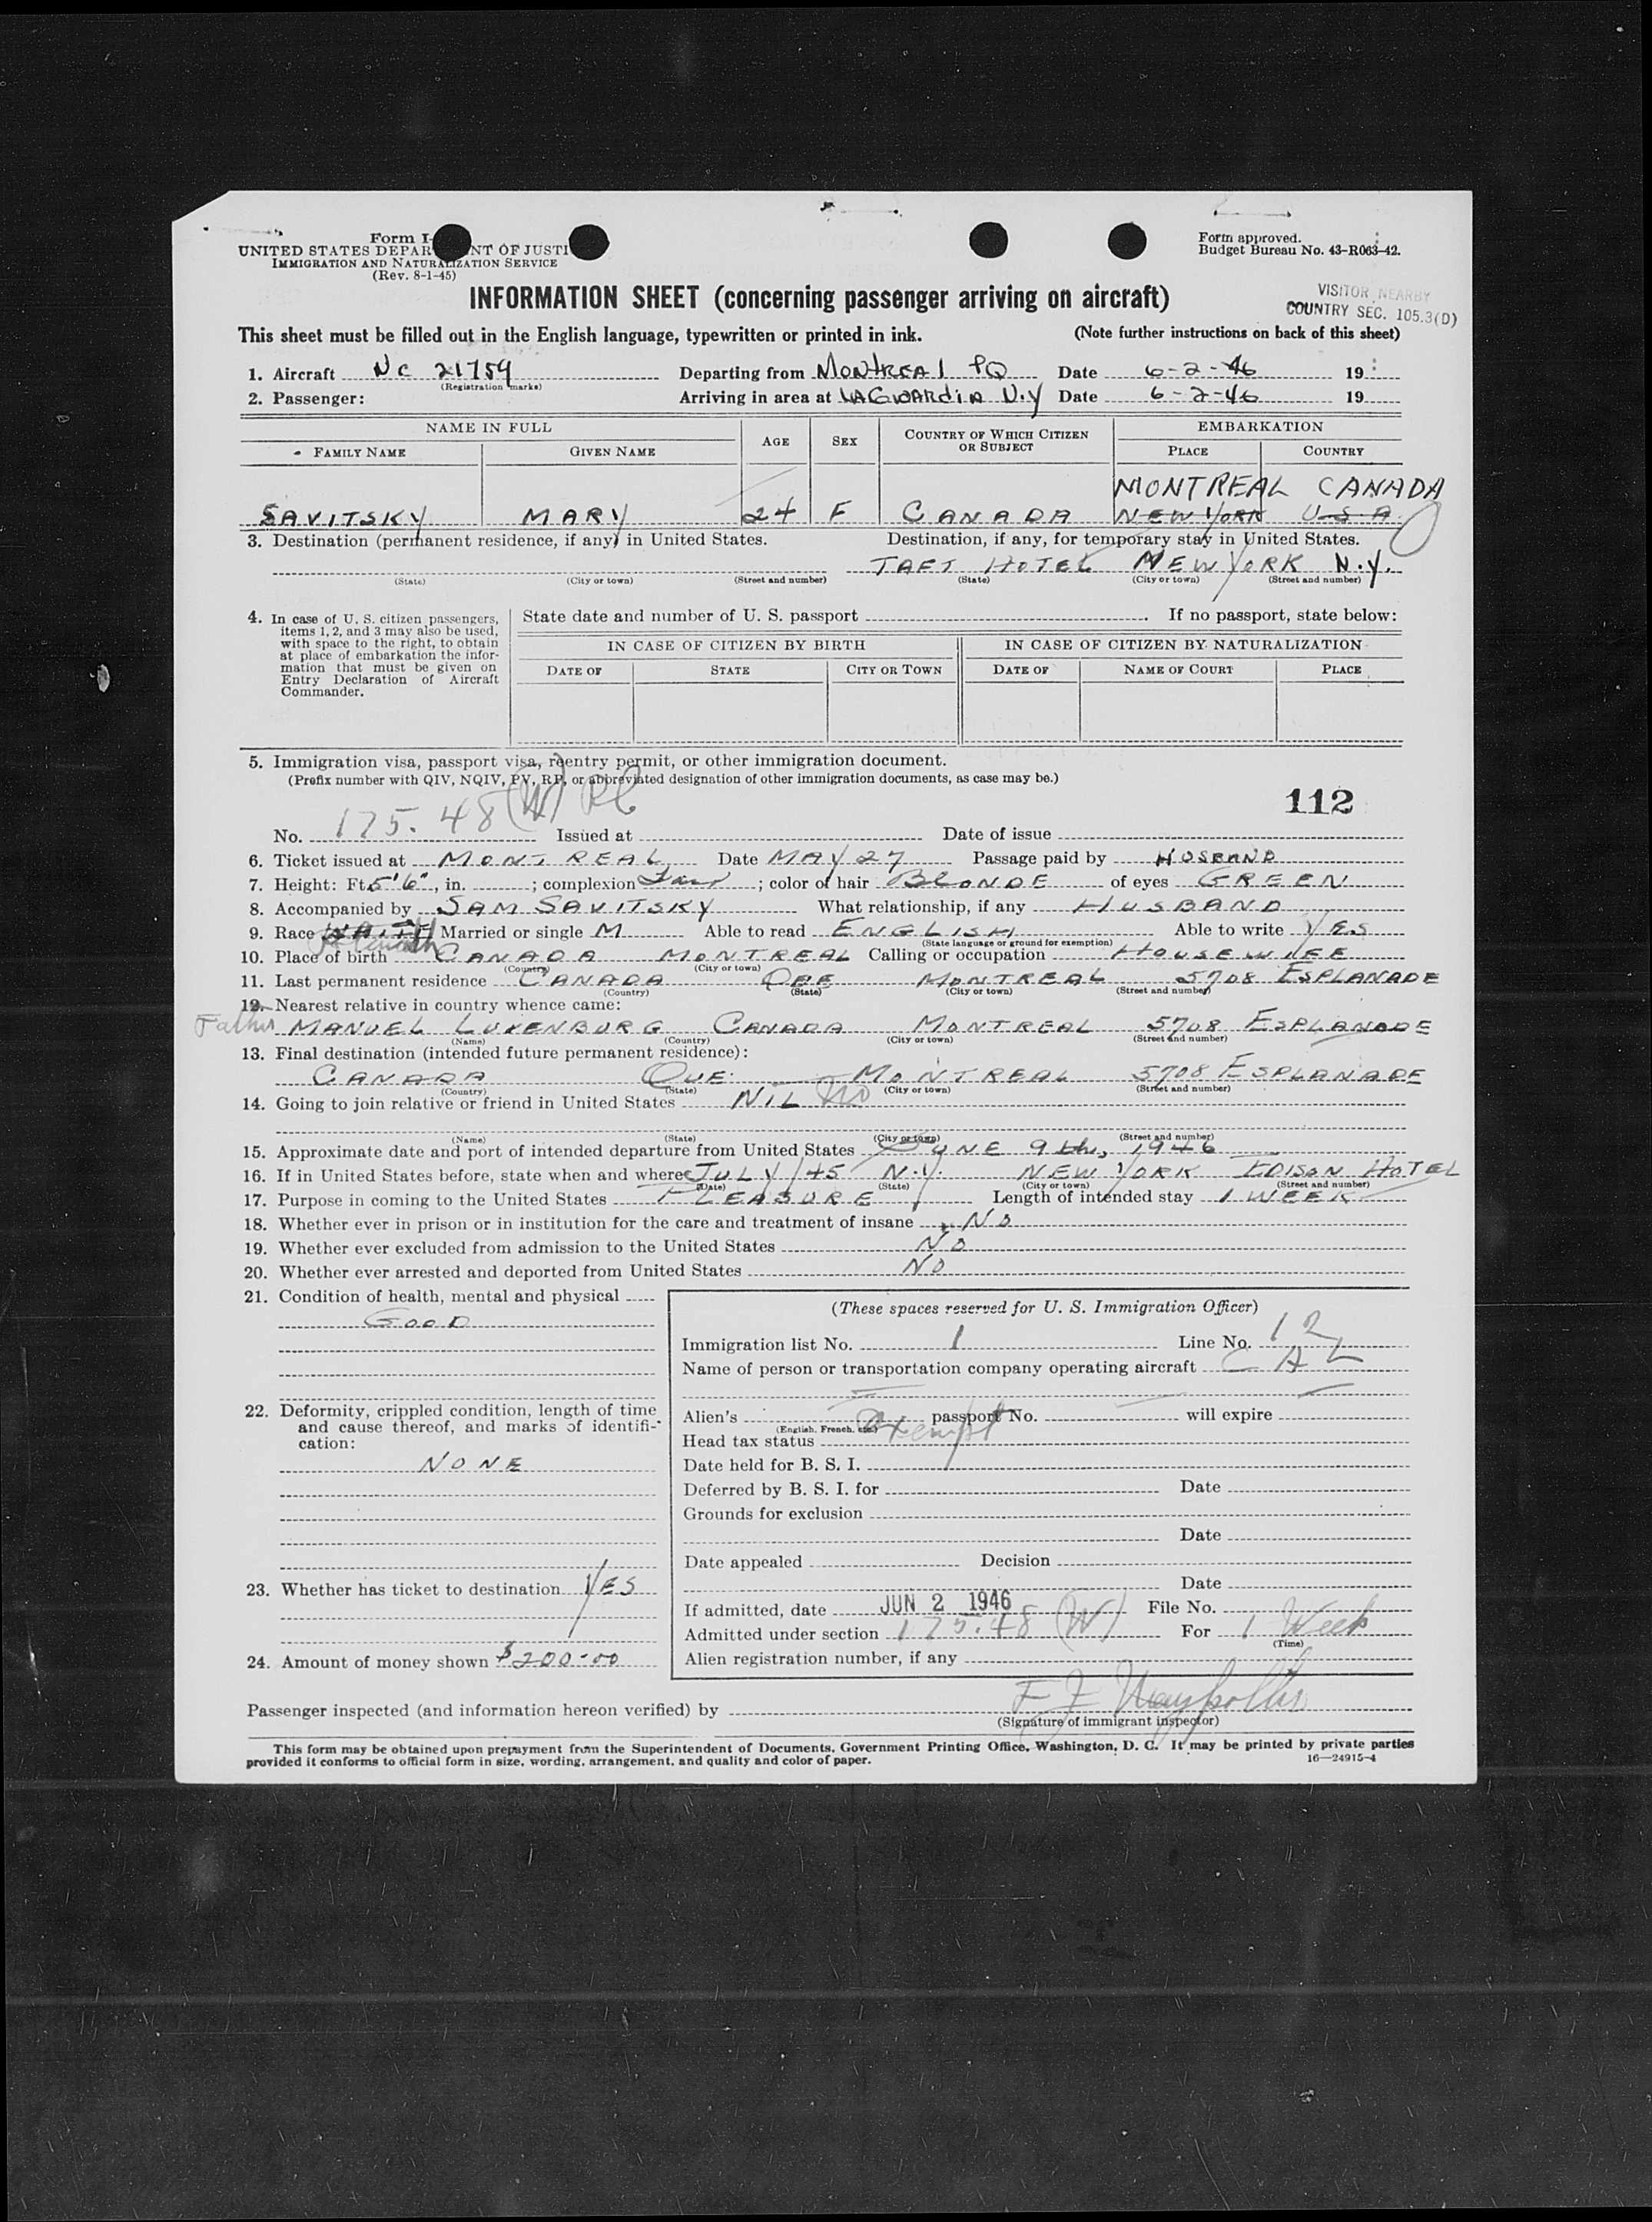 Form I-
UNITED STATES DEPAR NT OF JUSTI
IMMIGRATION AND NATURALIZATION SERVICE
(Rev. 8-1-45)
Form approved.
Budget Bureau No. 43-R063-42.
INFORMATION SHEET (concerning passenger arriving on aircraft)
VISITOR NEARBY
COUNTRY SEC. 105.3(D)
This sheet must be filled out in the English language, typewritten or printed in ink. (Note further instructions on back of this sheet)
1. Aircraft NC 21759 Departing from MONTREAL PQ Date 6-2-46 19
(Registration marks)
2. Passenger: Arriving in area at LAGUARDIA N.Y Date 6-2-46 19
NAME IN FULL AGE SEX COUNTRY OF WHICH CITIZEN OR SUBJECT EMBARKATION
FAMILY NAME GIVEN NAME PLACE COUNTRY
MONTREAL CANADA
SAVITSKY MARY 24 F CANADA NEW YORK U.S.A.
3. Destination (permanent residence, if any) in United States. Destination, if any, for temporary stay in United States.
TAFT HOTEL NEW YORK N.Y.
(State) (City or town) (Street and number) (State) (City or town) (Street and number)
4. In case of U. S. citizen passengers, items 1, 2, and 3 may also be used, with space to the right, to obtain at place of embarkation the information that must be given on Entry Declaration of Aircraft Commander.
State date and number of U. S. passport If no passport, state below:
IN CASE OF CITIZEN BY BIRTH IN CASE OF CITIZEN BY NATURALIZATION
DATE OF STATE CITY OR TOWN DATE OF NAME OF COURT PLACE
5. Immigration visa, passport visa, reentry permit, or other immigration document.
(Prefix number with QIV, NQIV, PV, RP, or abbreviated designation of other immigration documents, as case may be.)
112
No. 175.48 (W) Issued at Date of issue
6. Ticket issued at MONTREAL Date MAY 27 Passage paid by HUSBAND
7. Height: Ft. 5'6", in. ; complexion Fair ; color of hair BLONDE of eyes GREEN
8. Accompanied by SAM SAVITSKY What relationship, if any HUSBAND
9. Race WHITE Married or single M Able to read ENGLISH Able to write YES
(State language or ground for exemption)
10. Place of birth CANADA MONTREAL Calling or occupation HOUSEWIFE
(Country) (City or town)
11. Last permanent residence CANADA QUE MONTREAL 5708 ESPLANADE
(Country) (State) (City or town) (Street and number)
12. Nearest relative in country whence came:
Father MANUEL LUXENBURG CANADA MONTREAL 5708 ESPLANADE
(Name) (Country) (City or town) (Street and number)
13. Final destination (intended future permanent residence):
CANADA QUE. MONTREAL 5708 ESPLANADE
(Country) (State) (City or town) (Street and number)
14. Going to join relative or friend in United States NIL No
(Name) (State) (City or town) (Street and number)
15. Approximate date and port of intended departure from United States JUNE 9th, 1946
16. If in United States before, state when and where JULY/45 N.Y. NEW YORK EDISON HOTEL
(Date) (State) (City or town) (Street and number)
17. Purpose in coming to the United States PLEASURE Length of intended stay 1 WEEK
18. Whether ever in prison or in institution for the care and treatment of insane NO
19. Whether ever excluded from admission to the United States NO
20. Whether ever arrested and deported from United States NO
21. Condition of health, mental and physical
GOOD
22. Deformity, crippled condition, length of time and cause thereof, and marks of identification:
NONE
23. Whether has ticket to destination YES
24. Amount of money shown $200.00
(These spaces reserved for U. S. Immigration Officer)
Immigration list No. 1 Line No. 12
Name of person or transportation company operating aircraft CAL
Alien's passport No. will expire
(English, French, etc.)
Head tax status Exempt
Date held for B. S. I.
Deferred by B. S. I. for Date
Grounds for exclusion
Date
Date appealed Decision
Date
If admitted, date JUN 2 1946 File No.
Admitted under section 175.48 (W) For 1 Week
(Time)
Alien registration number, if any
Passenger inspected (and information hereon verified) by
(Signature of immigrant inspector)
This form may be obtained upon prepayment from the Superintendent of Documents, Government Printing Office, Washington, D. C. It may be printed by private parties
provided it conforms to official form in size, wording, arrangement, and quality and color of paper. 16—24915-4